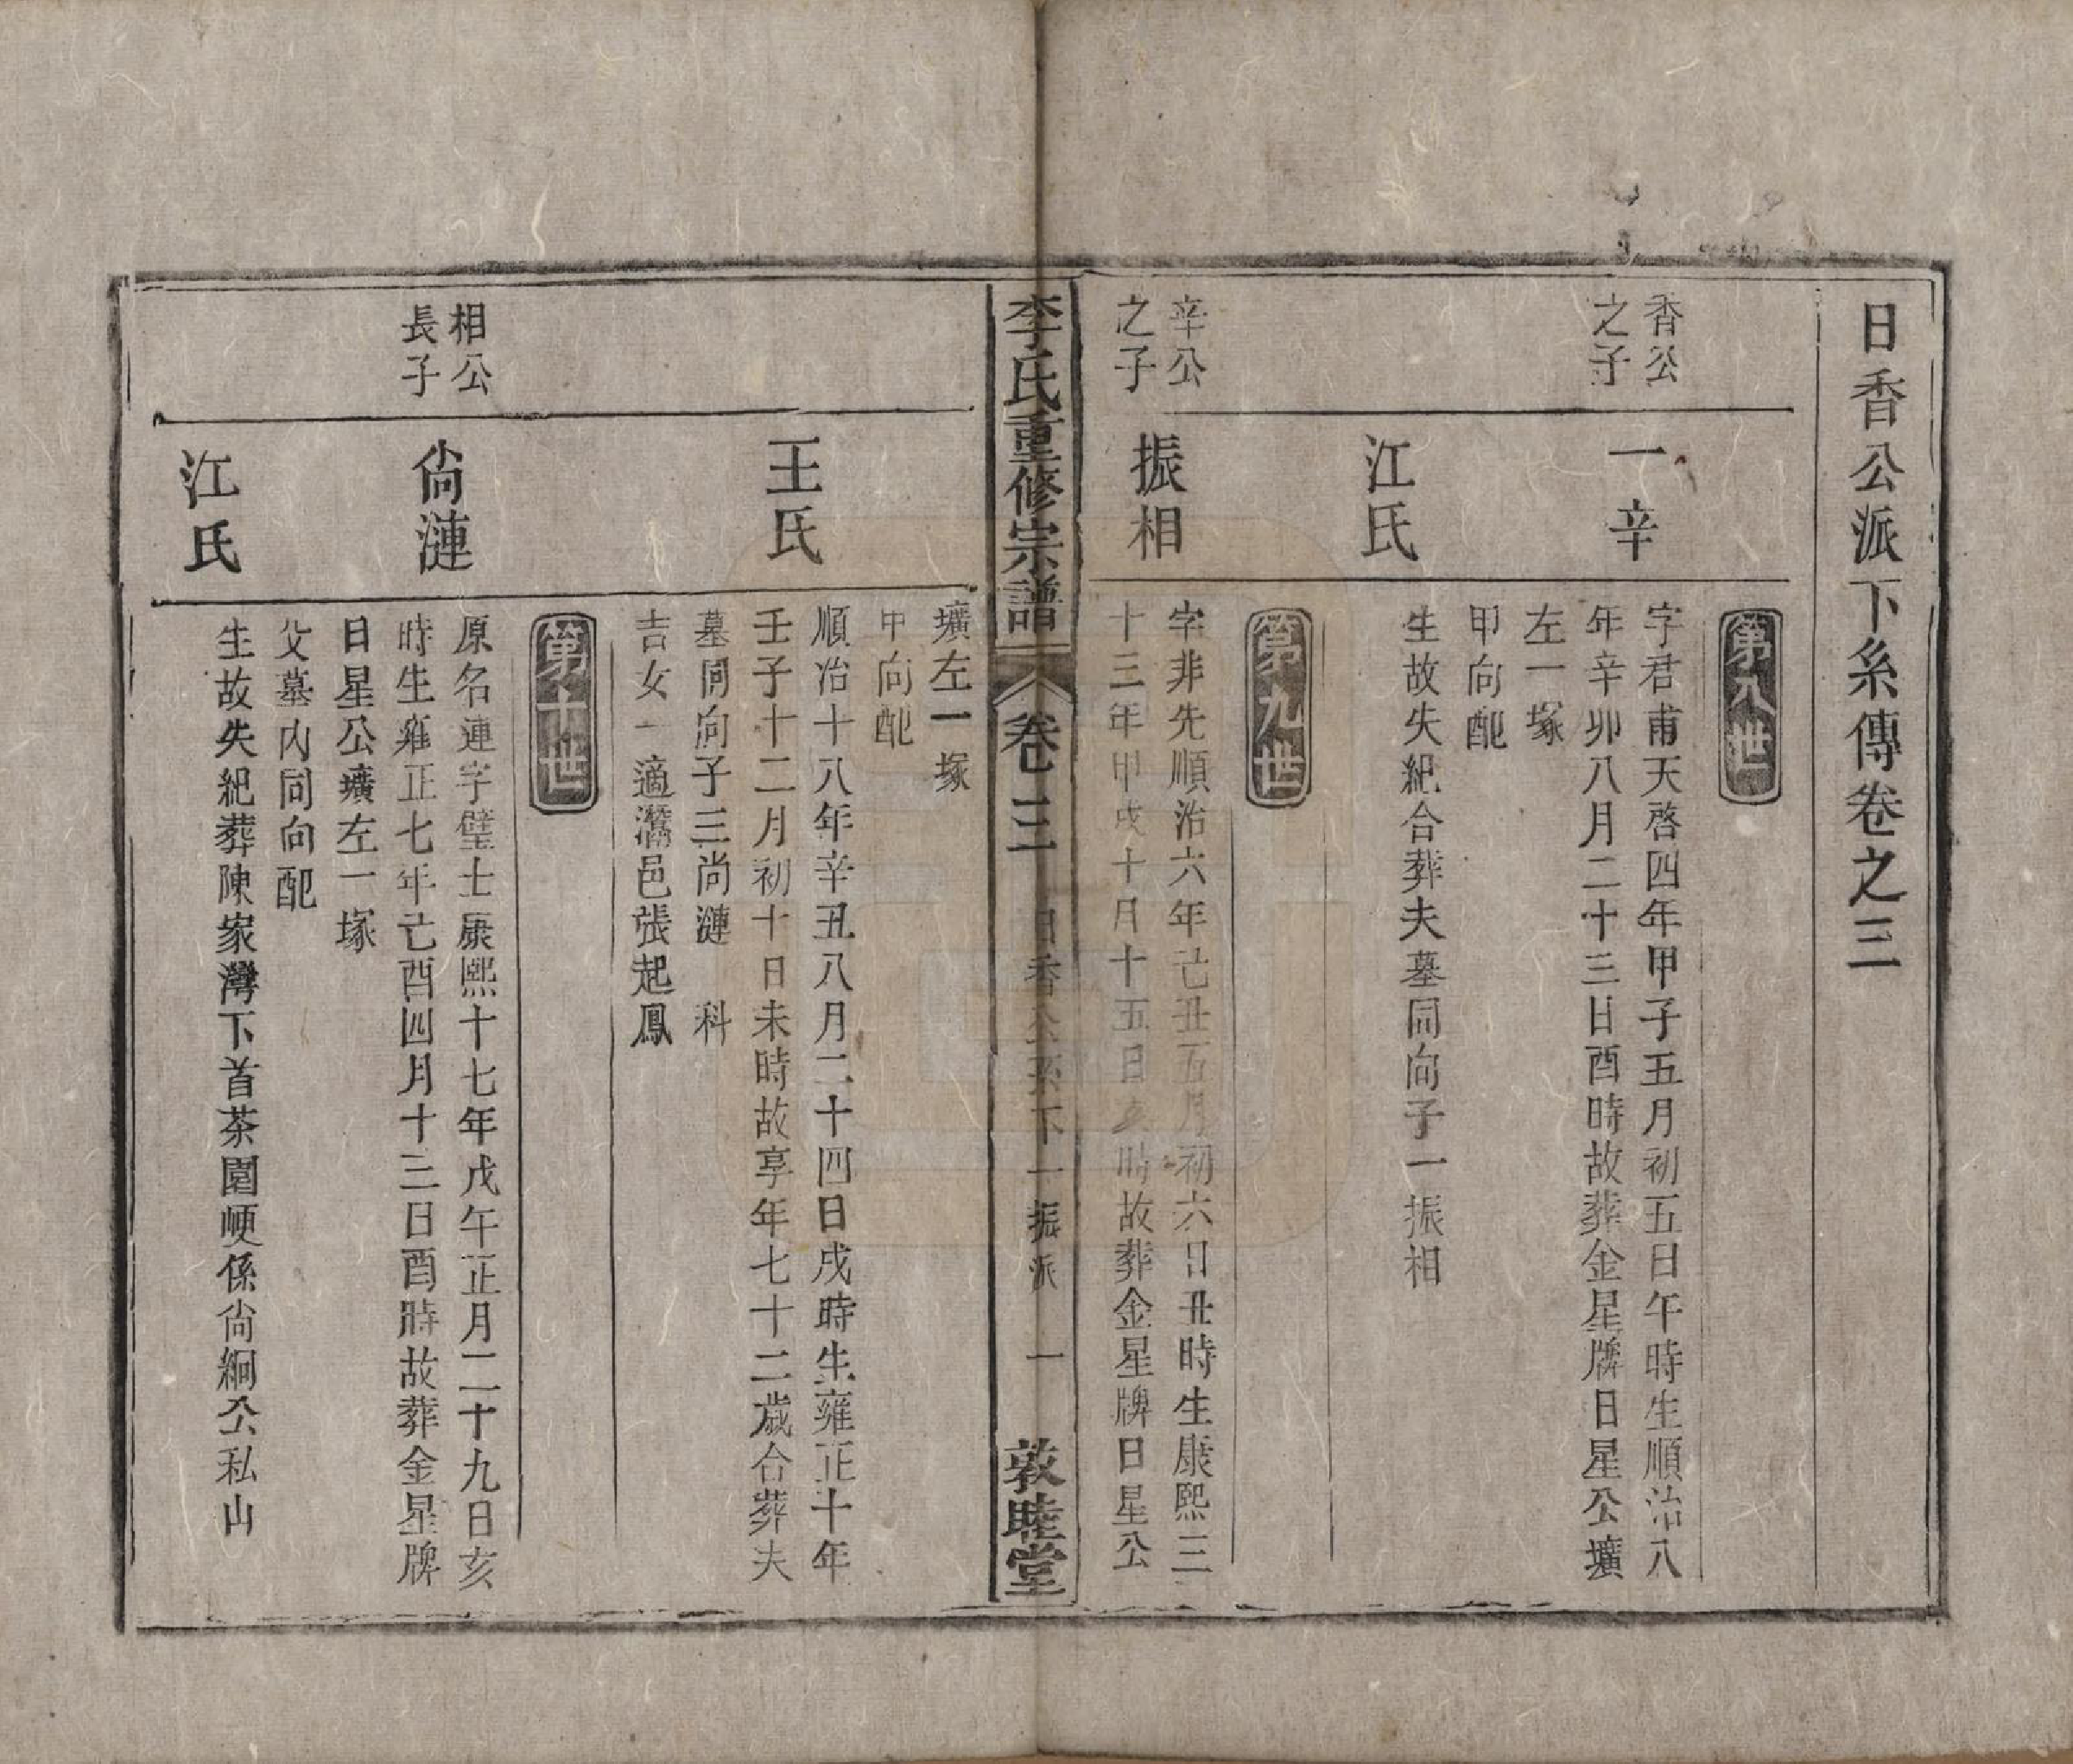 日香公派下糸傳卷之三
第八世
香公
之子
一辛
字君甫天啓四年甲子五月初五日午時生順治八
年辛卯八月二十三日酉時故葬金星牌日星公壙
左一塚
甲向配
江氏
生故失紀合葬夫墓同向子一振相
第九世
辛公
之子
振相
字非先順治六年己丑五月初六日丑時生康熙三
十三年甲戌十月十五日亥時故葬金星牌日星公
李氏重修宗譜
卷三
日香公系下一振派
一
敦睦堂
壙左一塚
甲向配
王氏
順治十八年辛丑八月二十四日戌時生雍正十年
壬子十二月初十日未時故享年七十二歲合葬夫
墓同向子三尚漣 科
吉女一適灊邑張起鳳
第十世
相公
長子
尙漣
原名連字璧士康熙十七年戊午正月二十九日亥
時生雍正七年己酉四月十三日酉時故葬金星牌
日星公壙左一塚
父墓内同向配
江氏
生故失紀葬陳家灣下首茶園㛹係尙絅公私山